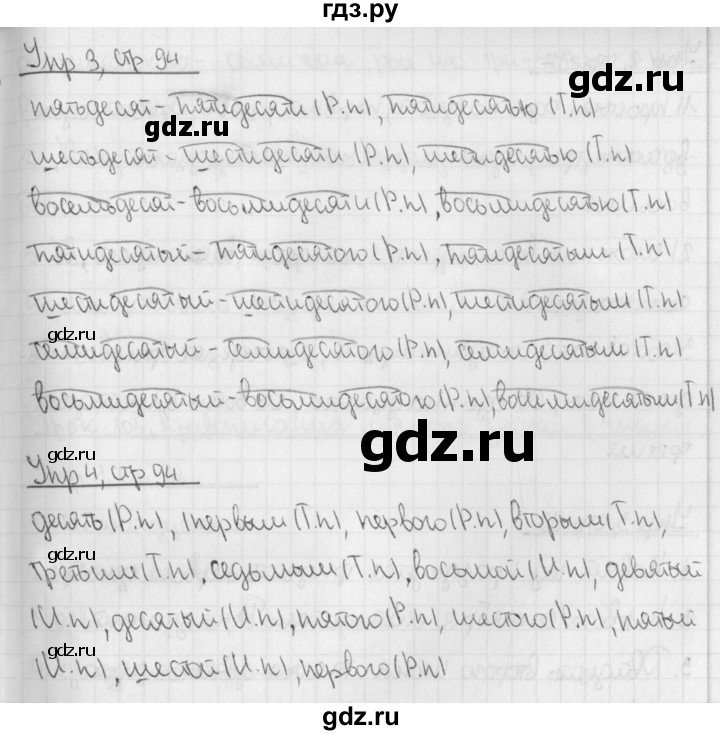 гдз.ру
Упр 3, стр 94
gdz.ru
пятьдесят - пятидесяти (Р.п), пятидесятью (Т.п)
gdz.ru
шестьдесят - шестидесяти (Р.п), шестидесятью (Т.п)
восемьдесят - восьмидесяти (Р.п), восьмидесятью (Т.п)
пятидесятый - пятидесятого (Р.п), пятидесятым (Т.п)
шестидесятый - шестидесятого (Р.п), шестидесятым (Т.п)
gdz.ru
семидесятый - семидесятого (Р.п), семидесятым (Т.п)
gdz.ru
восьмидесятый - восьмидесятого (Р.п), восьмидесятым (Т.п)
gdz.ru
Упр 4, стр 94
gdz.ru
десять (Р.п), первым (Т.п), первого (Р.п), вторым (Т.п),
gdz.ru
третьим (Т.п), седьмым (Т.п), восьмой (И.п), девятый
(И.п), десятый (И.п), пятого (Р.п), шестого (Р.п), пятый
gdz.ru
(И.п), шестой (И.п), первого (Р.п)
gdz.ru